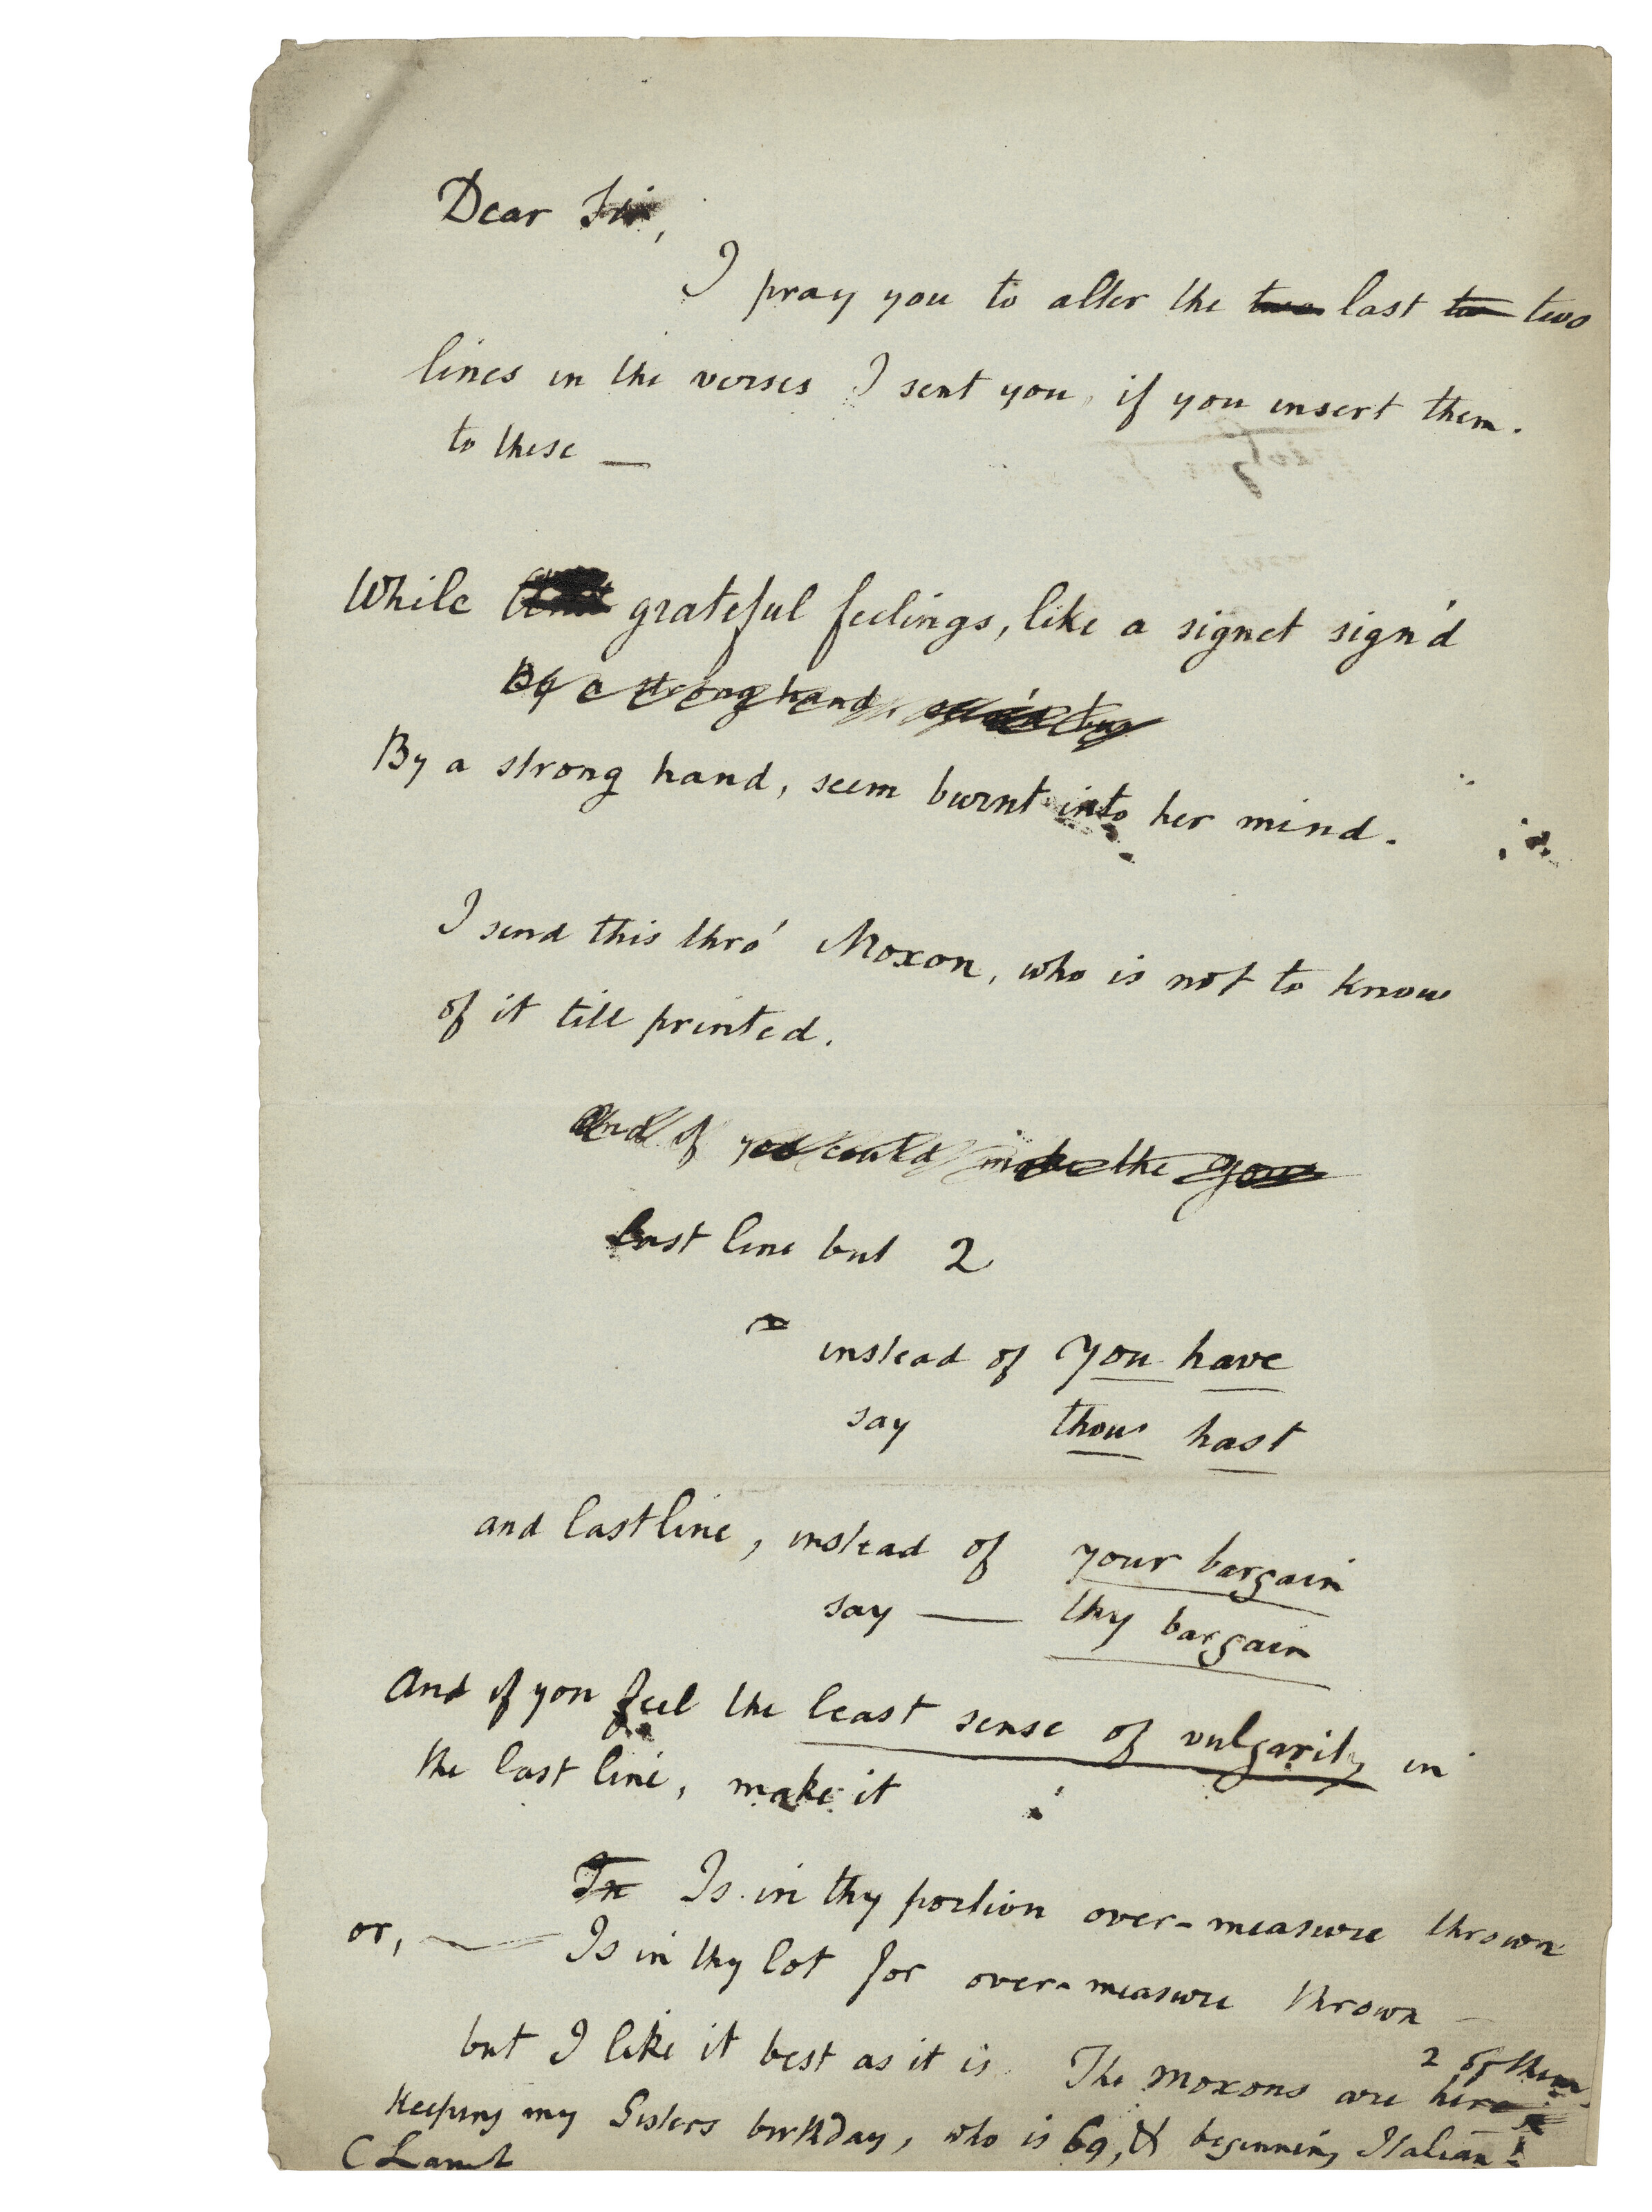 Dear Sir,
I pray you to alter the two last two
lines in the verses I sent you, if you insert them.
to these —
While grateful feelings, like a signet sign'd
By a strong hand,
By a strong hand, seem burnt into her mind.
I send this thro' Moxon, who is not to know
of it till printed.
And if you could make the
Last line but 2
instead of You have
say thou hast
and last line, instead of your bargain
say — thy bargain
And if you feel the least sense of vulgarity in
the last line, make it
In Is in thy portion over-measure thrown
or, — Is in thy lot for over-measure thrown —
but I like it best as it is. The Moxons are here 2 of them.
Keeping my Sisters birthday, who is 69, & beginning Italian!
C Lamb